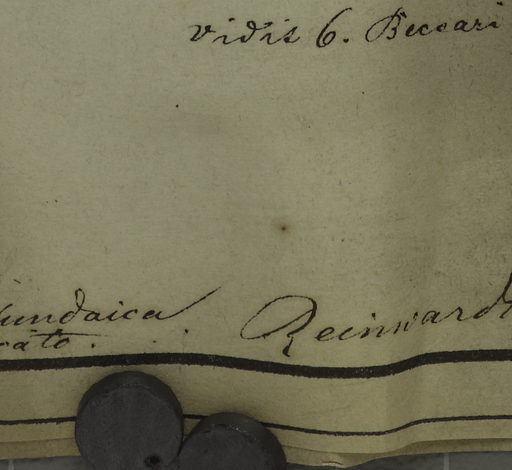 vidit O. Beccari
Sundaica Reinwardt
cato.